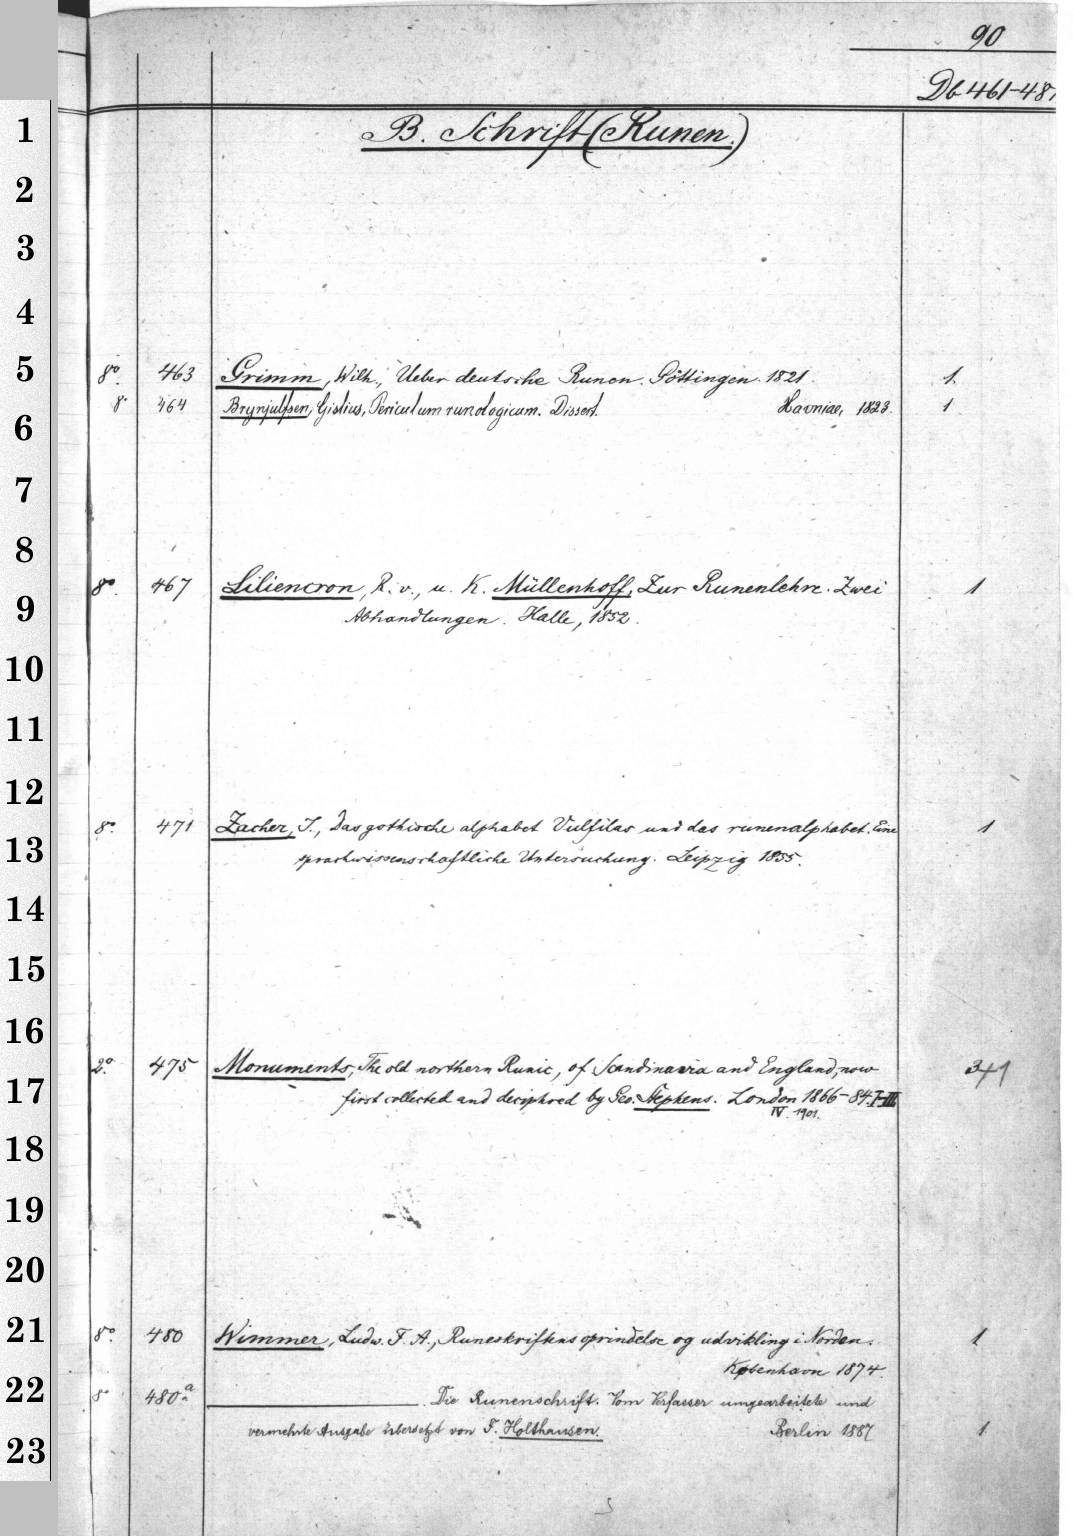 90
Db 461-481
1
B. Schrift (Runen.)
2
3
4
5
8o. 463 Grimm, Wilh., Ueber deutsche Runen. Göttingen. 1821. 1.
8o 464 Brynjulfsen, Gislius, Periculum runologicum. Dissert. Havniae, 1823. 1
6
7
8
8o. 467 Liliencron, R. v., u. K. Müllenhoff, Zur Runenlehre. Zwei 1
9
Abhandlungen. Halle, 1852.
10
11
12
8o. 471 Zacher, J., Das gothische alphabet Vulfilas und das runenalphabet. Eine 1
13
sprachwissenschaftliche Untersuchung. Leipzig 1855.
14
15
16
2o. 475 Monuments, The old northern Runic, of Scandinavia and England, now
17
first collected and deciphred by Geo. Stephens. London 1866-84. I-III
IV. 1901.
18
19
20
21
8o. 480 Wimmer, Ludw. F. A., Runeskriftens oprindelse og udvikling i Norden. 1
København 1874.
22
8o 480a. Die Runenschrift. Vom Verfasser umgearbeitete und
vermehrte Ausgabe übersetzt von F. Holthausen. Berlin 1887 1
23